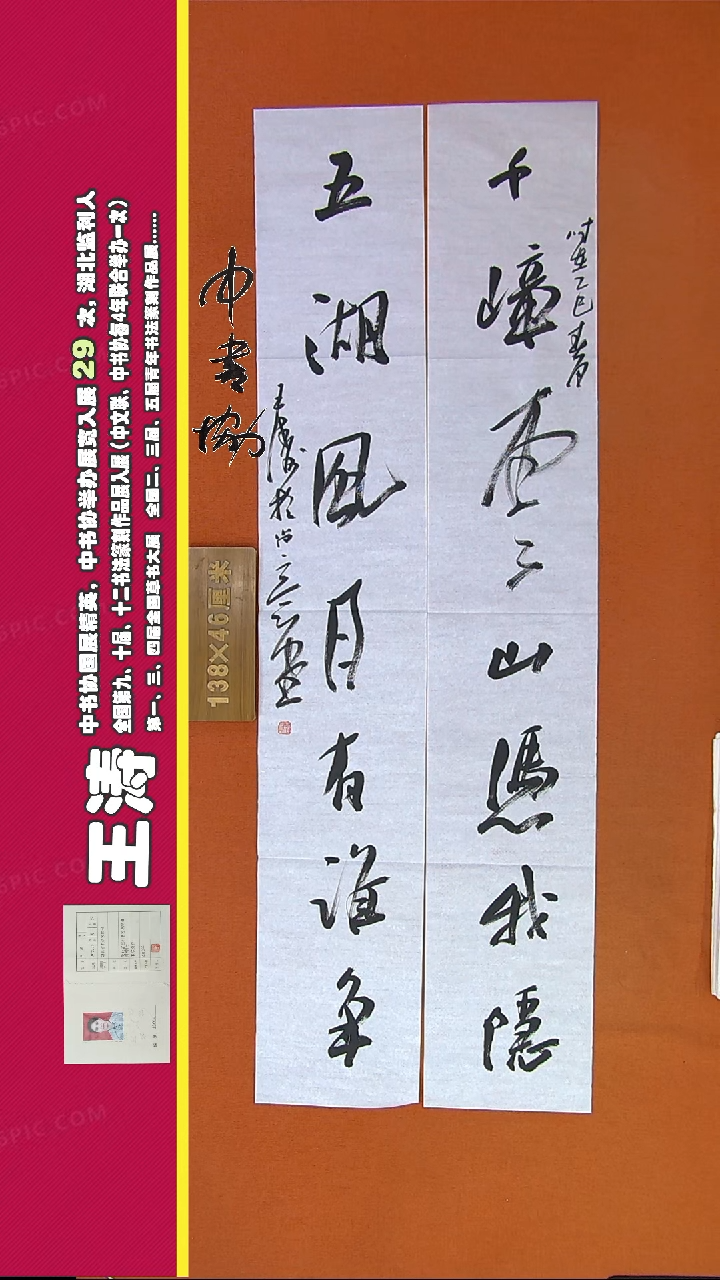 千嶂雲山憑我隱
時在乙巳春月
五湖風月有誰爭
王濤於
中書協
138×46厘米
王涛
中书协国展精英，中书协举办展览入展 29 次，湖北监利人
全国第九、十届、十二书法篆刻作品展入展（中文联、中书协各4年联合举办一次）
第一、三、四届全国草书大展 全国二、三届、五届青年书法篆刻作品展......